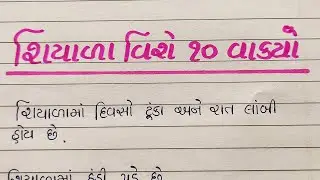 શિયાળા વિશે ૧૦ વાક્યો
શિયાળામાં દિવસો ટૂંકા અને રાત લાંબી
હોય છે.
શિયાળામાં ઠંડી પડે છે